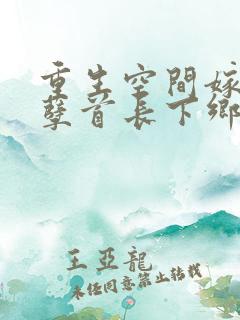 重生空間嫁
孽首長下鄉
王亞龍
未經同意禁止轉載